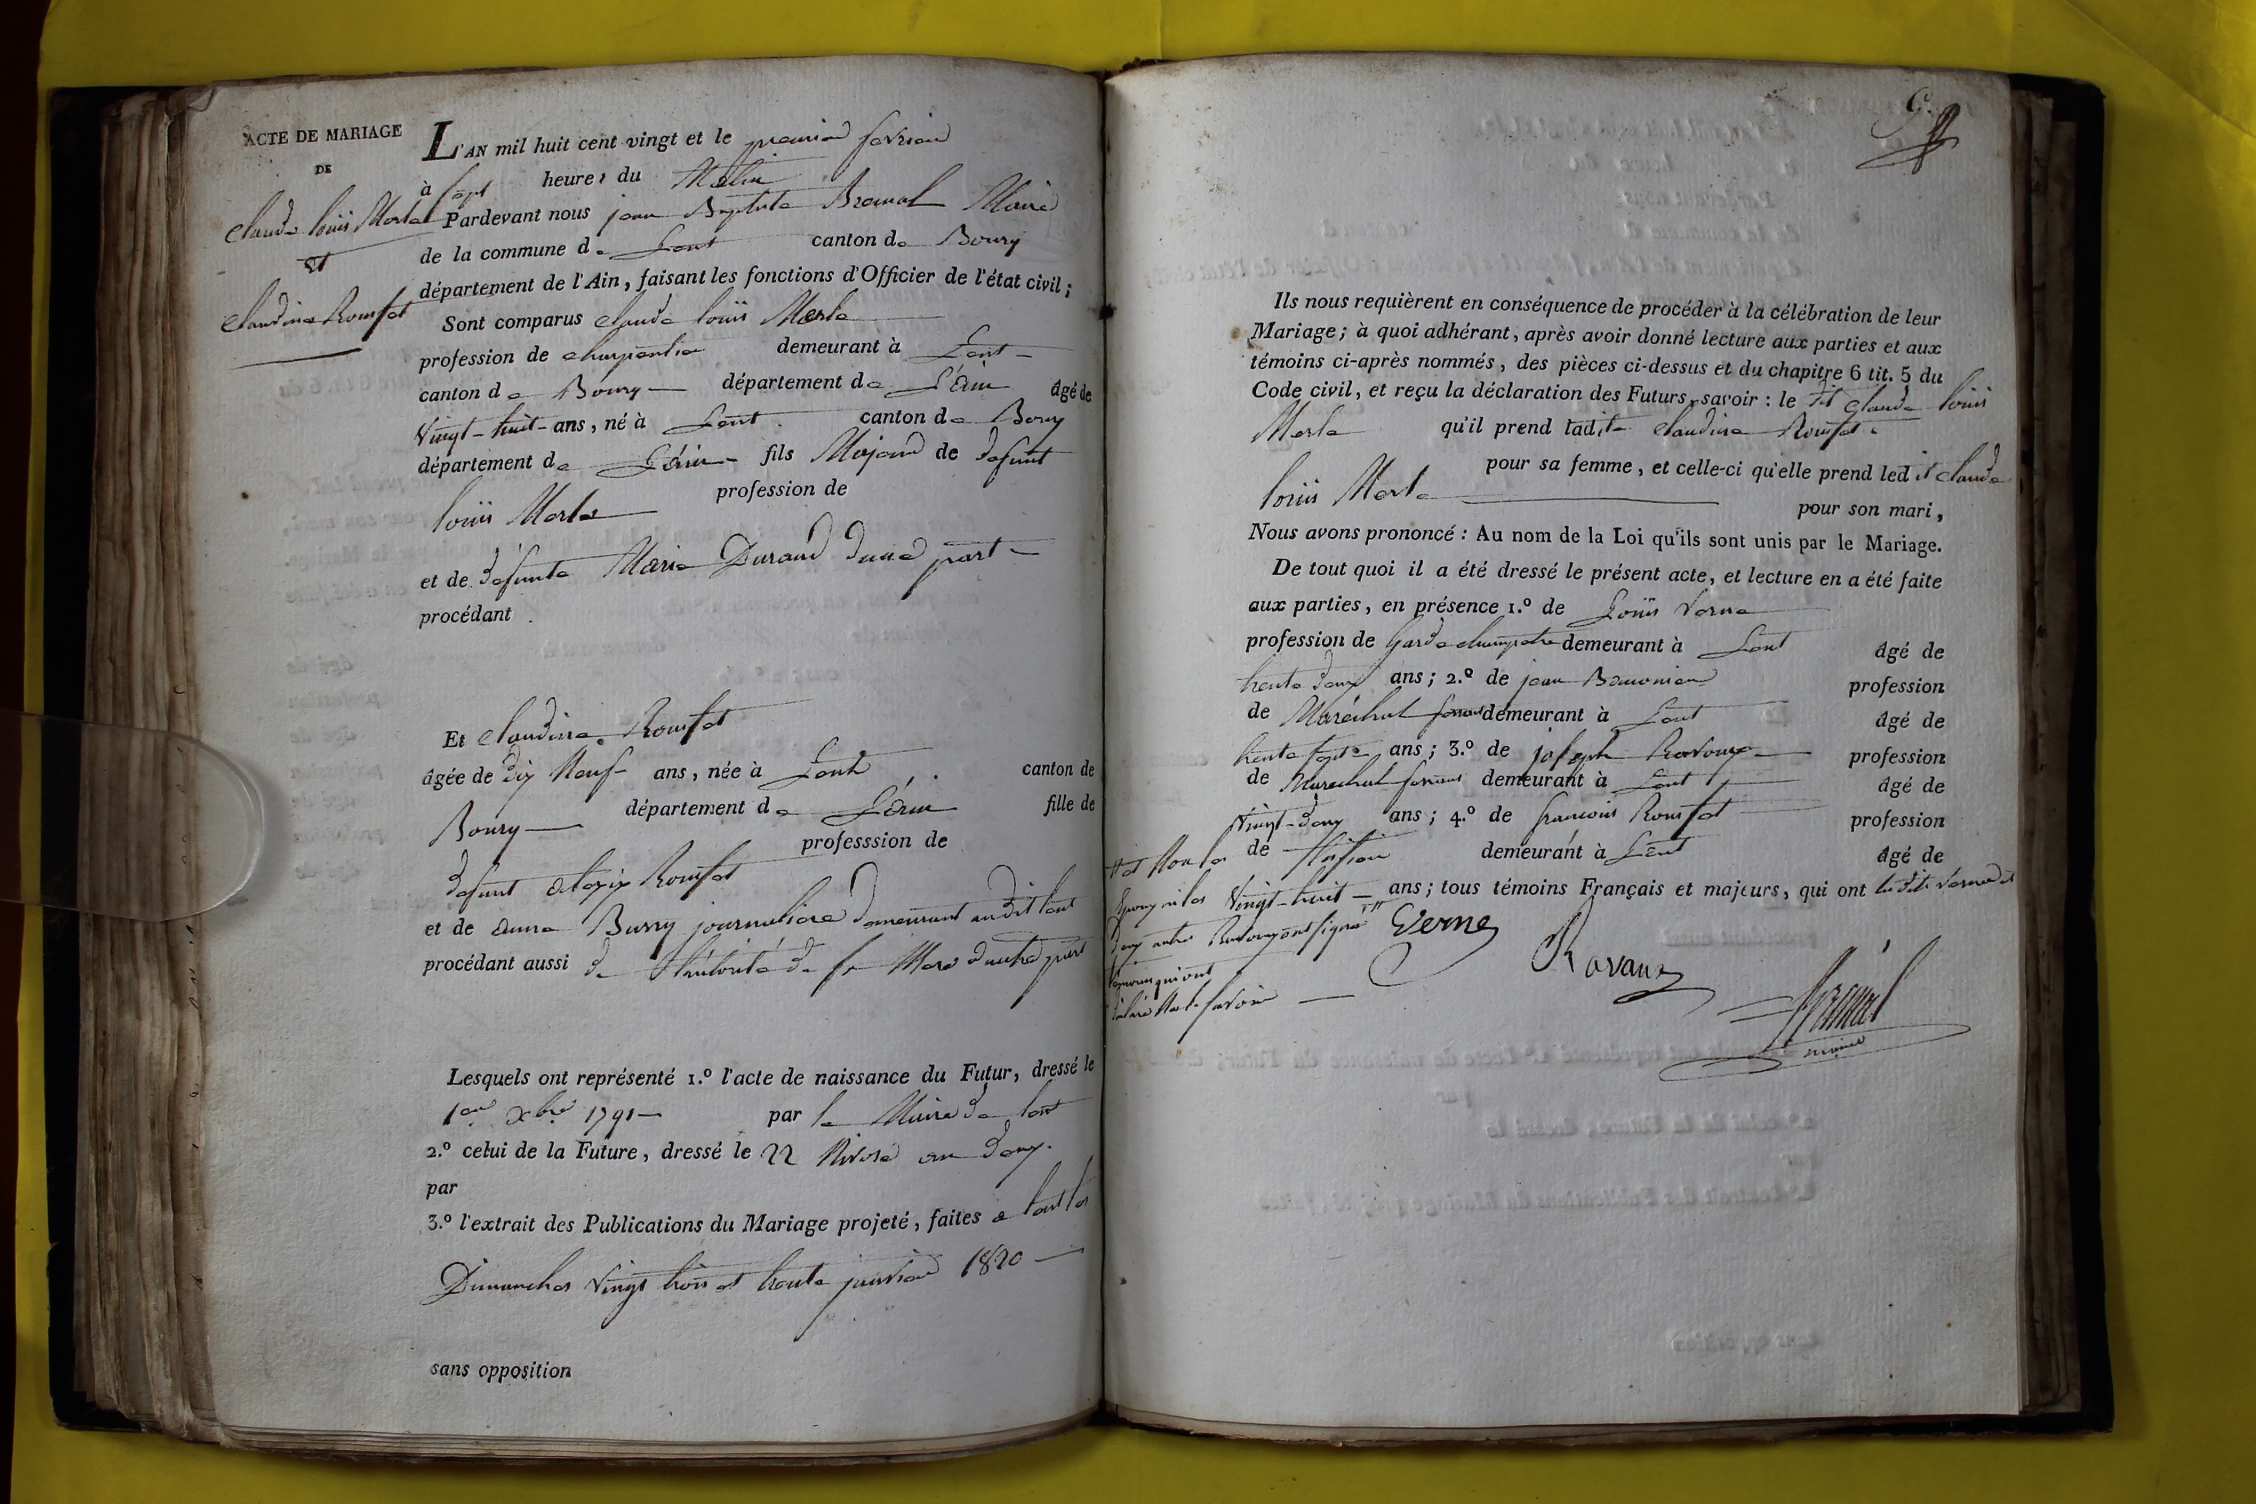 ACTE DE MARIAGE
DE
Claude loüis Merle
et
Claudine Rousset
L'AN mil huit cent vingt et le premier fevrier
à sept heures du Matin
Pardevant nous jean Baptiste Maire
de la commune de Lent canton de Bourg
département de l'Ain, faisant les fonctions d'Officier de l'état civil;
Sont comparus Claude loüis Merle
profession de charpentier demeurant à Lent
canton de Bourg département de L'ain âgé de
Vingt-huit ans, né à Lent canton de Bourg
département de L'ain fils Majeur de defunt
loüis Merle profession de
et de defunte Marie Durand dune part
procédant
Et Claudine Rousset
âgée de dix Neuf ans, née à Lent canton de
Bourg département de L'ain fille de
professsion de
defunt alexix Rousset
et de anne Burry journaliere demeurant audit lent
procédant aussi de Lhautorité de sa Mere dautre part
Lesquels ont représenté 1.º l'acte de naissance du Futur, dressé le
1er xbre 1791 par le Maire de lent
2.º celui de la Future, dressé le 22 Nivose an
par
3.º l'extrait des Publications du Mariage projeté, faites a lent les
Dimanches Vingt trois et trente janvier 1820
sans opposition
Ils nous requièrent en conséquence de procéder à la célébration de leur
Mariage; à quoi adhérant, après avoir donné lecture aux parties et aux
témoins ci-après nommés, des pièces ci-dessus et du chapitre 6 tit. 5 du
Code civil, et reçu la déclaration des Futurs, savoir: le dit Claude loüis
Merle qu'il prend ladite Claudine Rousset
pour sa femme, et celle-ci qu'elle prend ledit Claude
loüis Merle pour son mari,
Nous avons prononcé: Au nom de la Loi qu'ils sont unis par le Mariage.
De tout quoi il a été dressé le présent acte, et lecture en a été faite
aux parties, en présence 1.º de Loüis Verne
profession de Garde champetre demeurant à Lent âgé de
trente deux ans; 2.º de jean profession
de Maréchal ferrant demeurant à Lent âgé de
trente sept ans; 3.º de joseph profession
de Marechal ferrant demeurant à Lent âgé de
Vingt-deux ans; 4.º de francois Rousset profession
de demeurant à Lent âgé de
Vingt-huit ans; tous témoins Français et majeurs, qui ont
et Non les
Epoux ni les
deux autres signé
temoins qui ont
déclaré Ne le savoir
Verne
Ravaux
maire